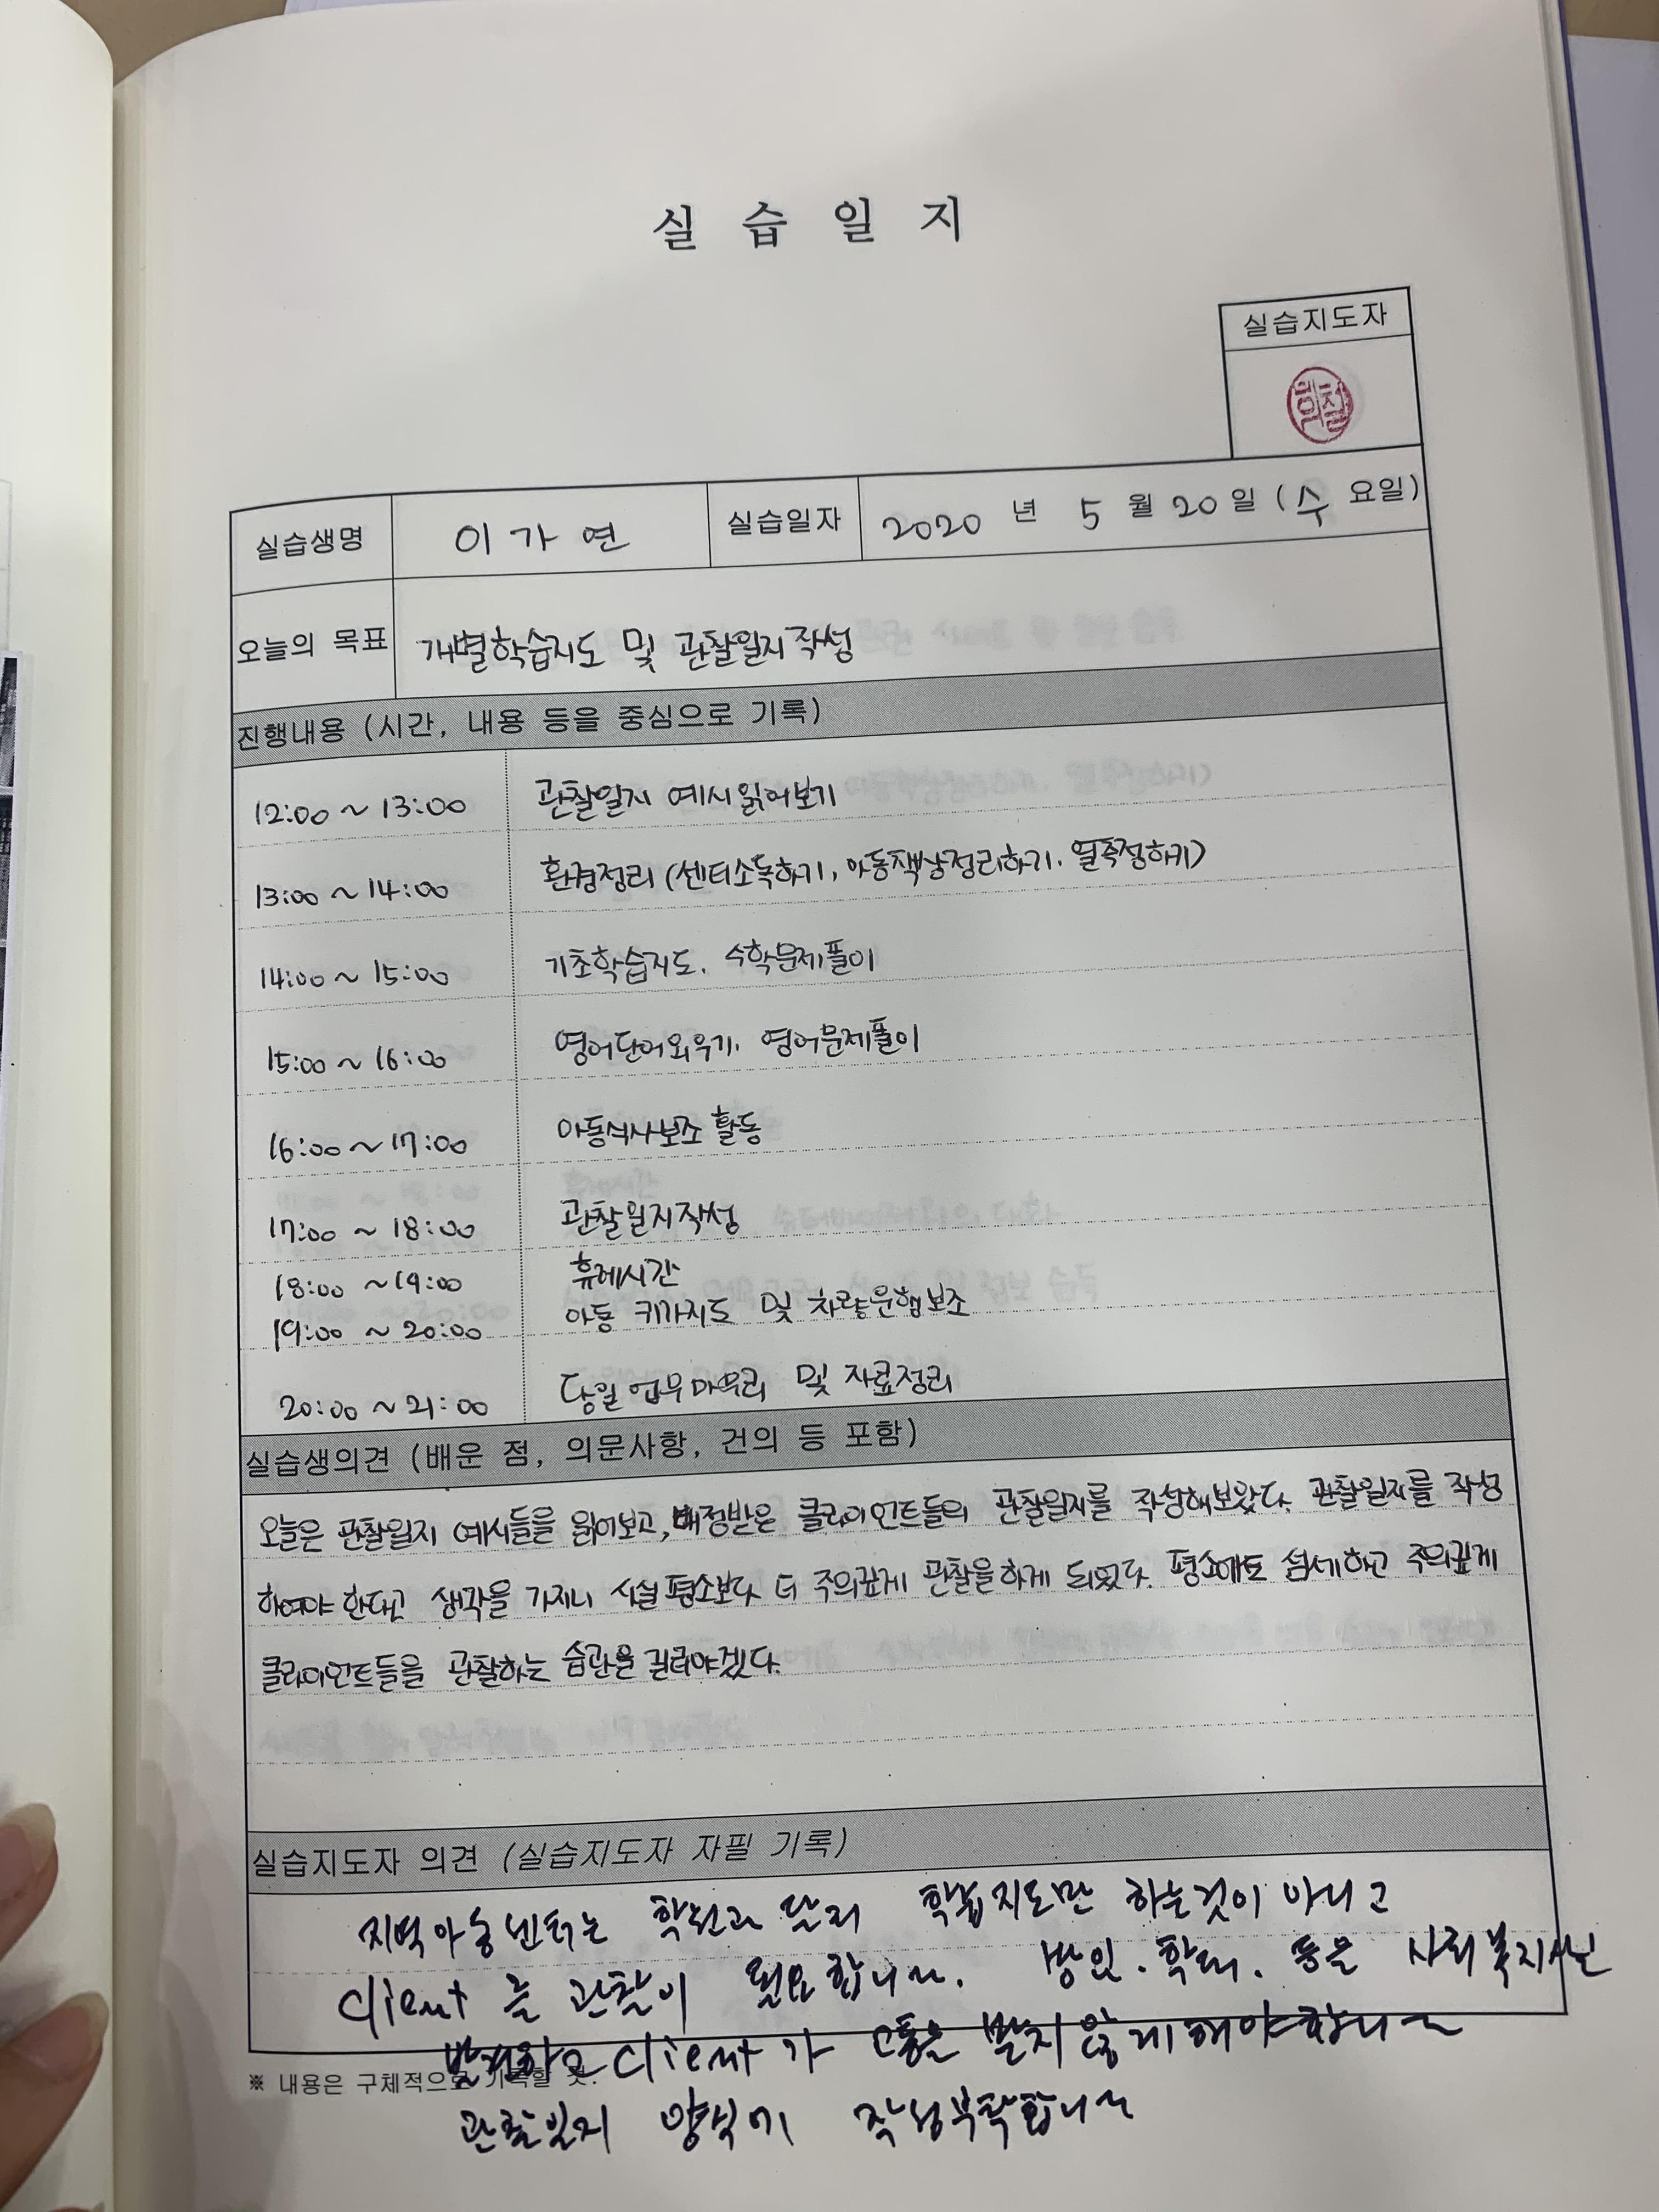 실 습 일 지
실습지도자
실습생명 이가연 실습일자 2020 년 5 월 20 일 (수 요일)
오늘의 목표 개별학습지도 및 관찰일지작성
진행내용 (시간, 내용 등을 중심으로 기록)
12:00 ~ 13:00 관찰일지 예시읽어보기
13:00 ~ 14:00 환경정리 (센터소독하기, 아동책상정리하기, 열측정하기)
14:00 ~ 15:00 기초학습지도, 수학문제풀이
15:00 ~ 16:00 영어단어외우기, 영어문제풀이
16:00 ~ 17:00 아동식사보조 활동
17:00 ~ 18:00 관찰일지작성
18:00 ~ 19:00 휴게시간
19:00 ~ 20:00 아동 귀가지도 및 차량운행보조
20:00 ~ 21:00 당일 업무마무리 및 자료정리
실습생의견 (배운 점, 의문사항, 건의 등 포함)
오늘은 관찰일지 예시들을 읽어보고, 배정받은 클라이언트들의 관찰일지를 작성해보았다. 관찰일지를 작성
하여야 한다고 생각을 가지니 사실 평소보다 더 주의깊게 관찰을 하게 되었다. 평소에도 섬세하고 주의깊게
클라이언트들을 관찰하는 습관을 길러야겠다.
실습지도자 의견 (실습지도자 자필 기록)
지역아동센터는 학원과 달리 학습지도만 하는것이 아니고
client 를 관찰이 필요합니다. 방임. 학대. 등을 사회복지사는
발견하고 client 가 고통을 받지 않게 해야 합니다
※ 내용은 구체적으로 기록할 것.
관찰일지 작성부탁합니다